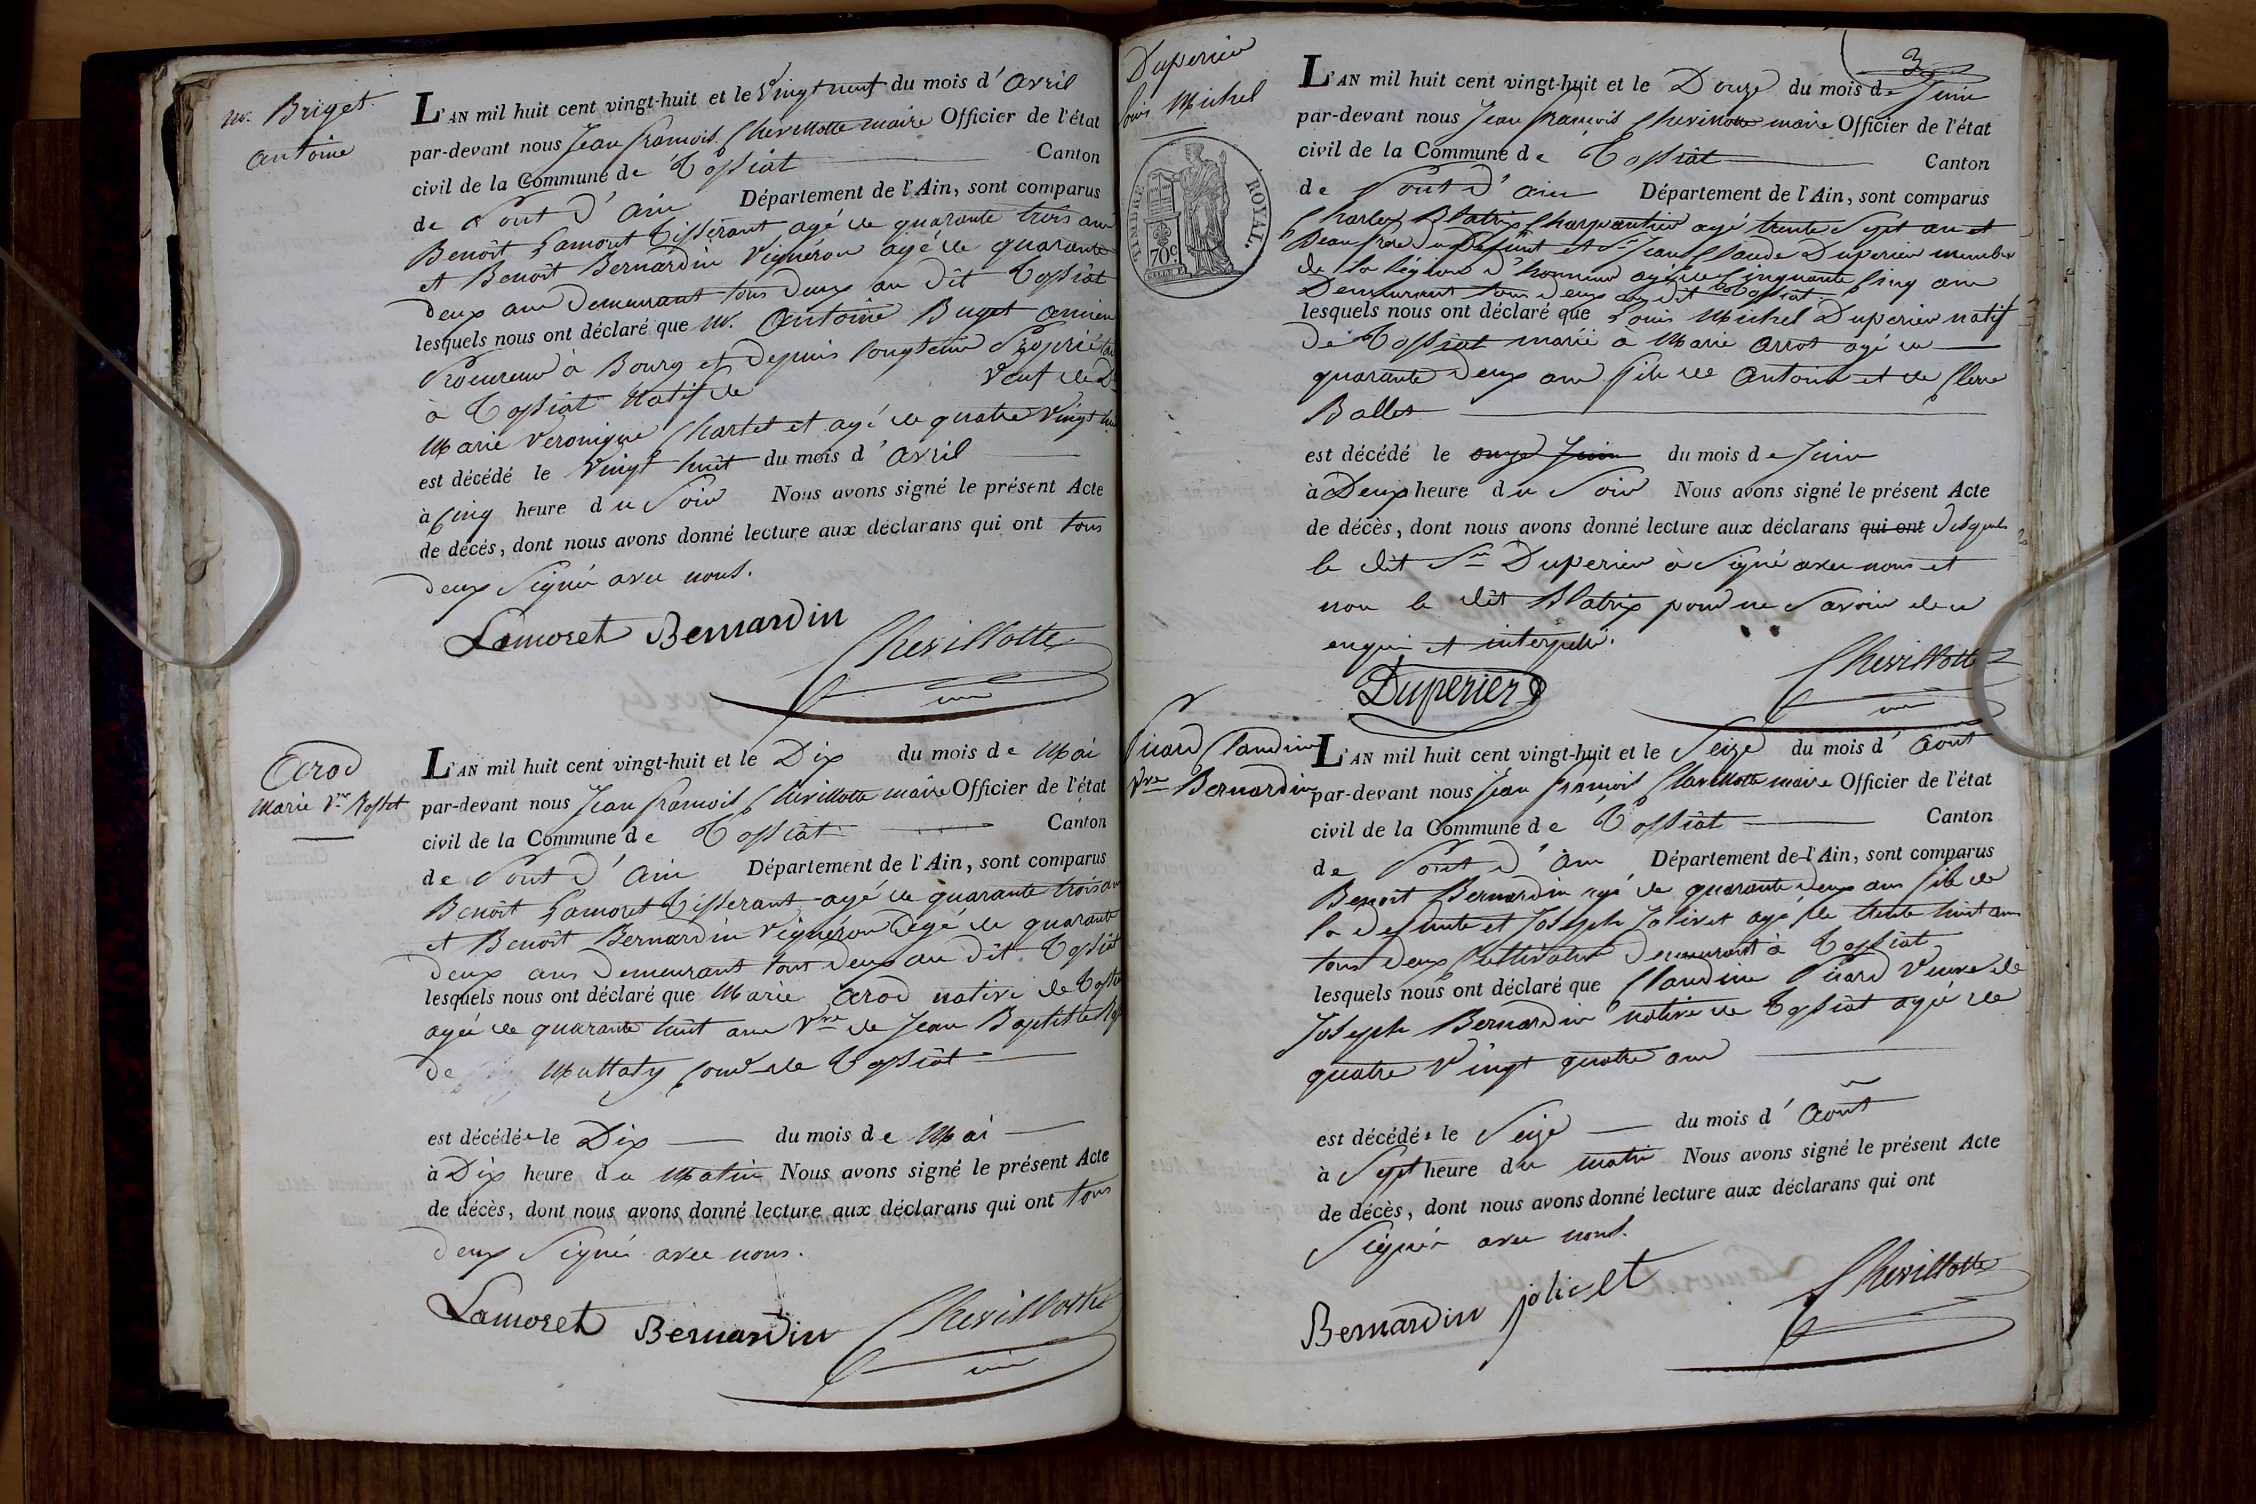 M. Briget
Antoine
L'AN mil huit cent vingt-huit et le vingt neuf du mois d'avril
par-devant nous Jean françois Chevillotte maire Officier de l'état
civil de la Commune de Tossiat Canton
de Pont d'ain Département de l'Ain, sont comparus
Benoît Lamoret Tisserant agé de quarante trois ans
et Benoît Bernardin vigneron agé de quarante
deux ans demeurant tous deux au dit Tossiat
lesquels nous ont déclaré que M. Antoine Buget ancien
Procureur à Bourg et depuis longtems Propriétai
à Tossiat natif de veuf de D
Marie Veronique Chartet et agé de quatre vingt
est décédé le vingt huit du mois d'avril
à Cinq heure du Soir Nous avons signé le présent Acte
de décès, dont nous avons donné lecture aux déclarans qui ont tous
deux Signé avec nous.
Lamoret Bernardin Chevillotte
Arod
Marie Vve Rosset
L'AN mil huit cent vingt-huit et le Dix du mois de Mai
par-devant nous Jean françois Chevillotte maire Officier de l'état
civil de la Commune de Tossiat Canton
de Pont d'Ain Département de l'Ain, sont comparus
Benoît Lamoret Tisserant agé de quarante trois an
et Benoît Bernardin vigneron agé de quarante
deux ans demeurant tous deux au dit Tossiat
lesquels nous ont déclaré que Marie Arod native de
agée de quarante huit ans Vve de Jean Baptiste
de Mattaty de Tossiat
est décédée le Dix du mois de Mai
à Dix heure du Matin Nous avons signé le présent Acte
de décès, dont nous avons donné lecture aux déclarans qui ont tous
deux Signé avec nous.
Lamoret Bernardin Chevillotte
3
Duperier
Louis Michel
TIMBRE ROYAL.
70c
L'AN mil huit cent vingt-huit et le Douze du mois de Juin
par-devant nous Jean françois Chevillotte maire Officier de l'état
civil de la Commune de Tossiat Canton
de Pont d'ain Département de l'Ain, sont comparus
Charles Blatrix Charpentier agé trente Sept an et
Beau frere du Defunt et Sr Jean Claude Duperier membre
de la Légion d'honneur agé de Cinquante Cinq ans
Demeurant tous deux au dit Tossiat
lesquels nous ont déclaré que Louis Michel Duperier natif
de Tossiat marié à Marie Arrot agé de
quarante deux ans fils de Antoine et de Clerre
Ballet
est décédé le onze Juin du mois de Juin
à Deux heure du Soir Nous avons signé le présent Acte
de décès, dont nous avons donné lecture aux déclarans qui ont desquels
le dit Sr Duperier à Signé avec nous et
non le dit Blatrix pour ne Savoir de ce
enquis et interpellé.
Duperier Chevillotte
Picard Claudine
Vve Bernardin
L'AN mil huit cent vingt-huit et le Seize du mois d'Aout
par-devant nous Jean françois Chevillotte maire Officier de l'état
civil de la Commune de Tossiat Canton
de Pont d'Ain Département de l'Ain, sont comparus
Benoît Bernardin agé de quarante deux ans fils de
la defunte et Joseph Jolivet agé de trente huit ans
tous deux Cultivateur demeurant à Tossiat
lesquels nous ont déclaré que Claudine Picard Veuve de
Joseph Bernardin native de Tossiat agée de
quatre vingt quatre ans
est décédée le Seize du mois d'Aout
à Sept heure du matin Nous avons signé le présent Acte
de décès, dont nous avons donné lecture aux déclarans qui ont
Signés avec nous.
Bernardin Chevillotte